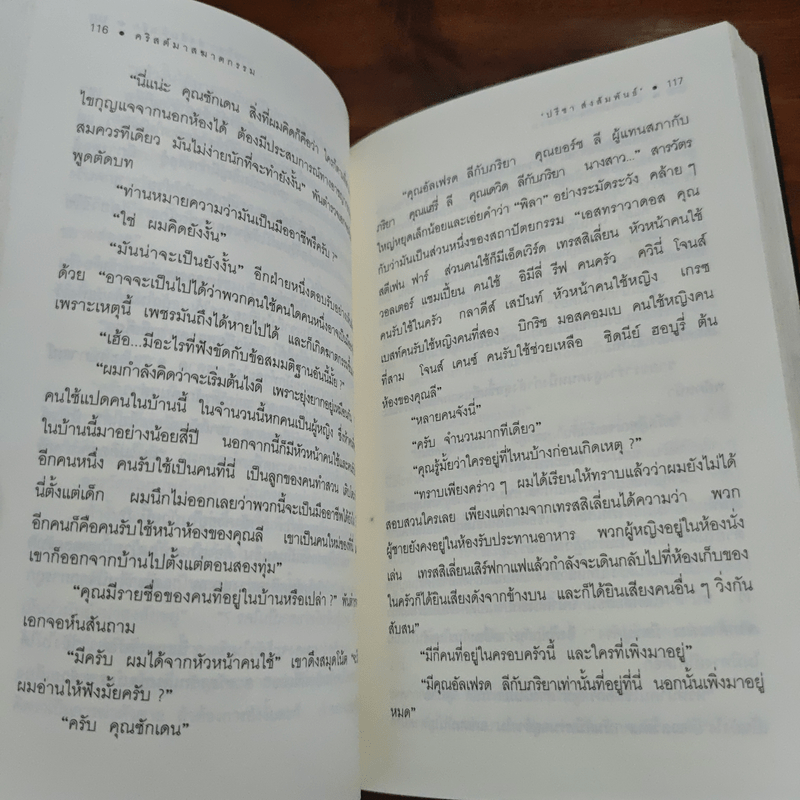 116 • คริสต์มาสฆาตกรรม
“นี่แน่ะ คุณซักเดน สิ่งที่ผมคิดก็คือว่า
ไขกุญแจจากนอกห้องได้ ต้องมีประสบการณ์ทาง
สมควรทีเดียว มันไม่ง่ายนักที่จะทำยังงั้น”
พูดตัดบท
“ท่านหมายความว่ามันเป็นมืออาชีพรึครับ?”
“ใช่ ผมคิดยังงั้น”
“มันน่าจะเป็นยังงั้น” อีกฝ่ายหนึ่งตอบรับอย่าง
ด้วย “อาจจะเป็นไปได้ว่าพวกคนใช้คนใดคนหนึ่งอาจ
เพราะเหตุนี้ เพชรมันถึงได้หายไปได้ และก็เกิดฆาตกรรมขึ้น
“เฮ้อ...มีอะไรที่ฟังขัดกับข้อสมมติฐานอันนี้มั้ย?”
“ผมกำลังคิดว่าจะเริ่มต้นไงดี เพราะยุ่งยากอยู่เหมือนกัน
คนใช้แปดคนในบ้านนี้ ในจำนวนนี้หกคนเป็นผู้หญิง
ในบ้านนี้มาอย่างน้อยสี่ปี นอกจากนี้ก็มีหัวหน้าคนใช้
อีกคนหนึ่ง คนรับใช้เป็นคนที่นี่ เป็นลูกของคนทำสวน
นี่ตั้งแต่เด็ก ผมนึกไม่ออกเลยว่าพวกนี้จะเป็นมืออาชีพได้
อีกคนก็คือคนรับใช้หน้าห้องของคุณลี เขาเป็นคนใหม่ของที่นี่
เขาก็ออกจากบ้านไปตั้งแต่ตอนสองทุ่ม”
“คุณมีรายชื่อของคนที่อยู่ในบ้านหรือเปล่า?”
เอกจอห์นสันถาม
“มีครับ ผมได้จากหัวหน้าคนใช้” เขาดึงสมุดโน้ต
ผมอ่านให้ฟังมั้ยครับ?”
“ครับ คุณซักเดน”
‘ปรีชา ส่งสัมพันธ์’ • 117
“คุณอัลเฟรด ลีกับภริยา คุณยอร์ซ ลี ผู้แทนสภากับ
ภริยา คุณแฮรี่ ลี คุณเดวิด ลีกับภริยา นางสาว...” สารวัตร
ใหญ่หยุดเล็กน้อยและเอ่ยคำว่า “พิลา” อย่างระมัดระวัง คล้ายๆ
กับว่ามันเป็นส่วนหนึ่งของสถาปัตยกรรม “เอสทราวาดอส คุณ
สตีเฟน ฟาร์ ส่วนคนใช้ก็มีเอ็ดเวิร์ด เทรสสิเลี่ยน หัวหน้าคนใช้
วอลเตอร์ แชมเปี้ยน คนใช้ อิมิลี่ รีฟ คนครัว ควินี่ โจนส์
คนรับใช้ในครัว กลาดีส์ เสปันท์ หัวหน้าคนใช้หญิง เกรซ
เบสท์คนรับใช้หญิงคนที่สอง บิกริซ มอสคอมเบ คนใช้หญิงคน
ที่สาม โจนส์ เคนซ์ คนรับใช้ช่วยเหลือ ซิดนีย์ ฮอบูรี่ ต้น
ห้องของคุณลี”
“หลายคนจังนี่”
“ครับ จำนวนมากทีเดียว”
“คุณรู้มั้ยว่าใครอยู่ที่ไหนบ้างก่อนเกิดเหตุ?”
“ทราบเพียงคร่าวๆ ผมได้เรียนให้ทราบแล้วว่าผมยังไม่ได้
สอบสวนใครเลย เพียงแต่ถามจากเทรสสิเลี่ยนได้ความว่า พวก
ผู้ชายยังคงอยู่ในห้องรับประทานอาหาร พวกผู้หญิงอยู่ในห้องนั่ง
เล่น เทรสสิเลี่ยนเสิร์ฟกาแฟแล้วกำลังจะเดินกลับไปที่ห้องเก็บของ
ในครัวก็ได้ยินเสียงดังจากข้างบน และก็ได้ยินเสียงคนอื่นๆ วิ่งกัน
สับสน”
“มีกี่คนที่อยู่ในครอบครัวนี้ และใครที่เพิ่งมาอยู่”
“มีคุณอัลเฟรด ลีกับภริยาเท่านั้นที่อยู่ที่นี่ นอกนั้นเพิ่งมาอยู่
หมด”